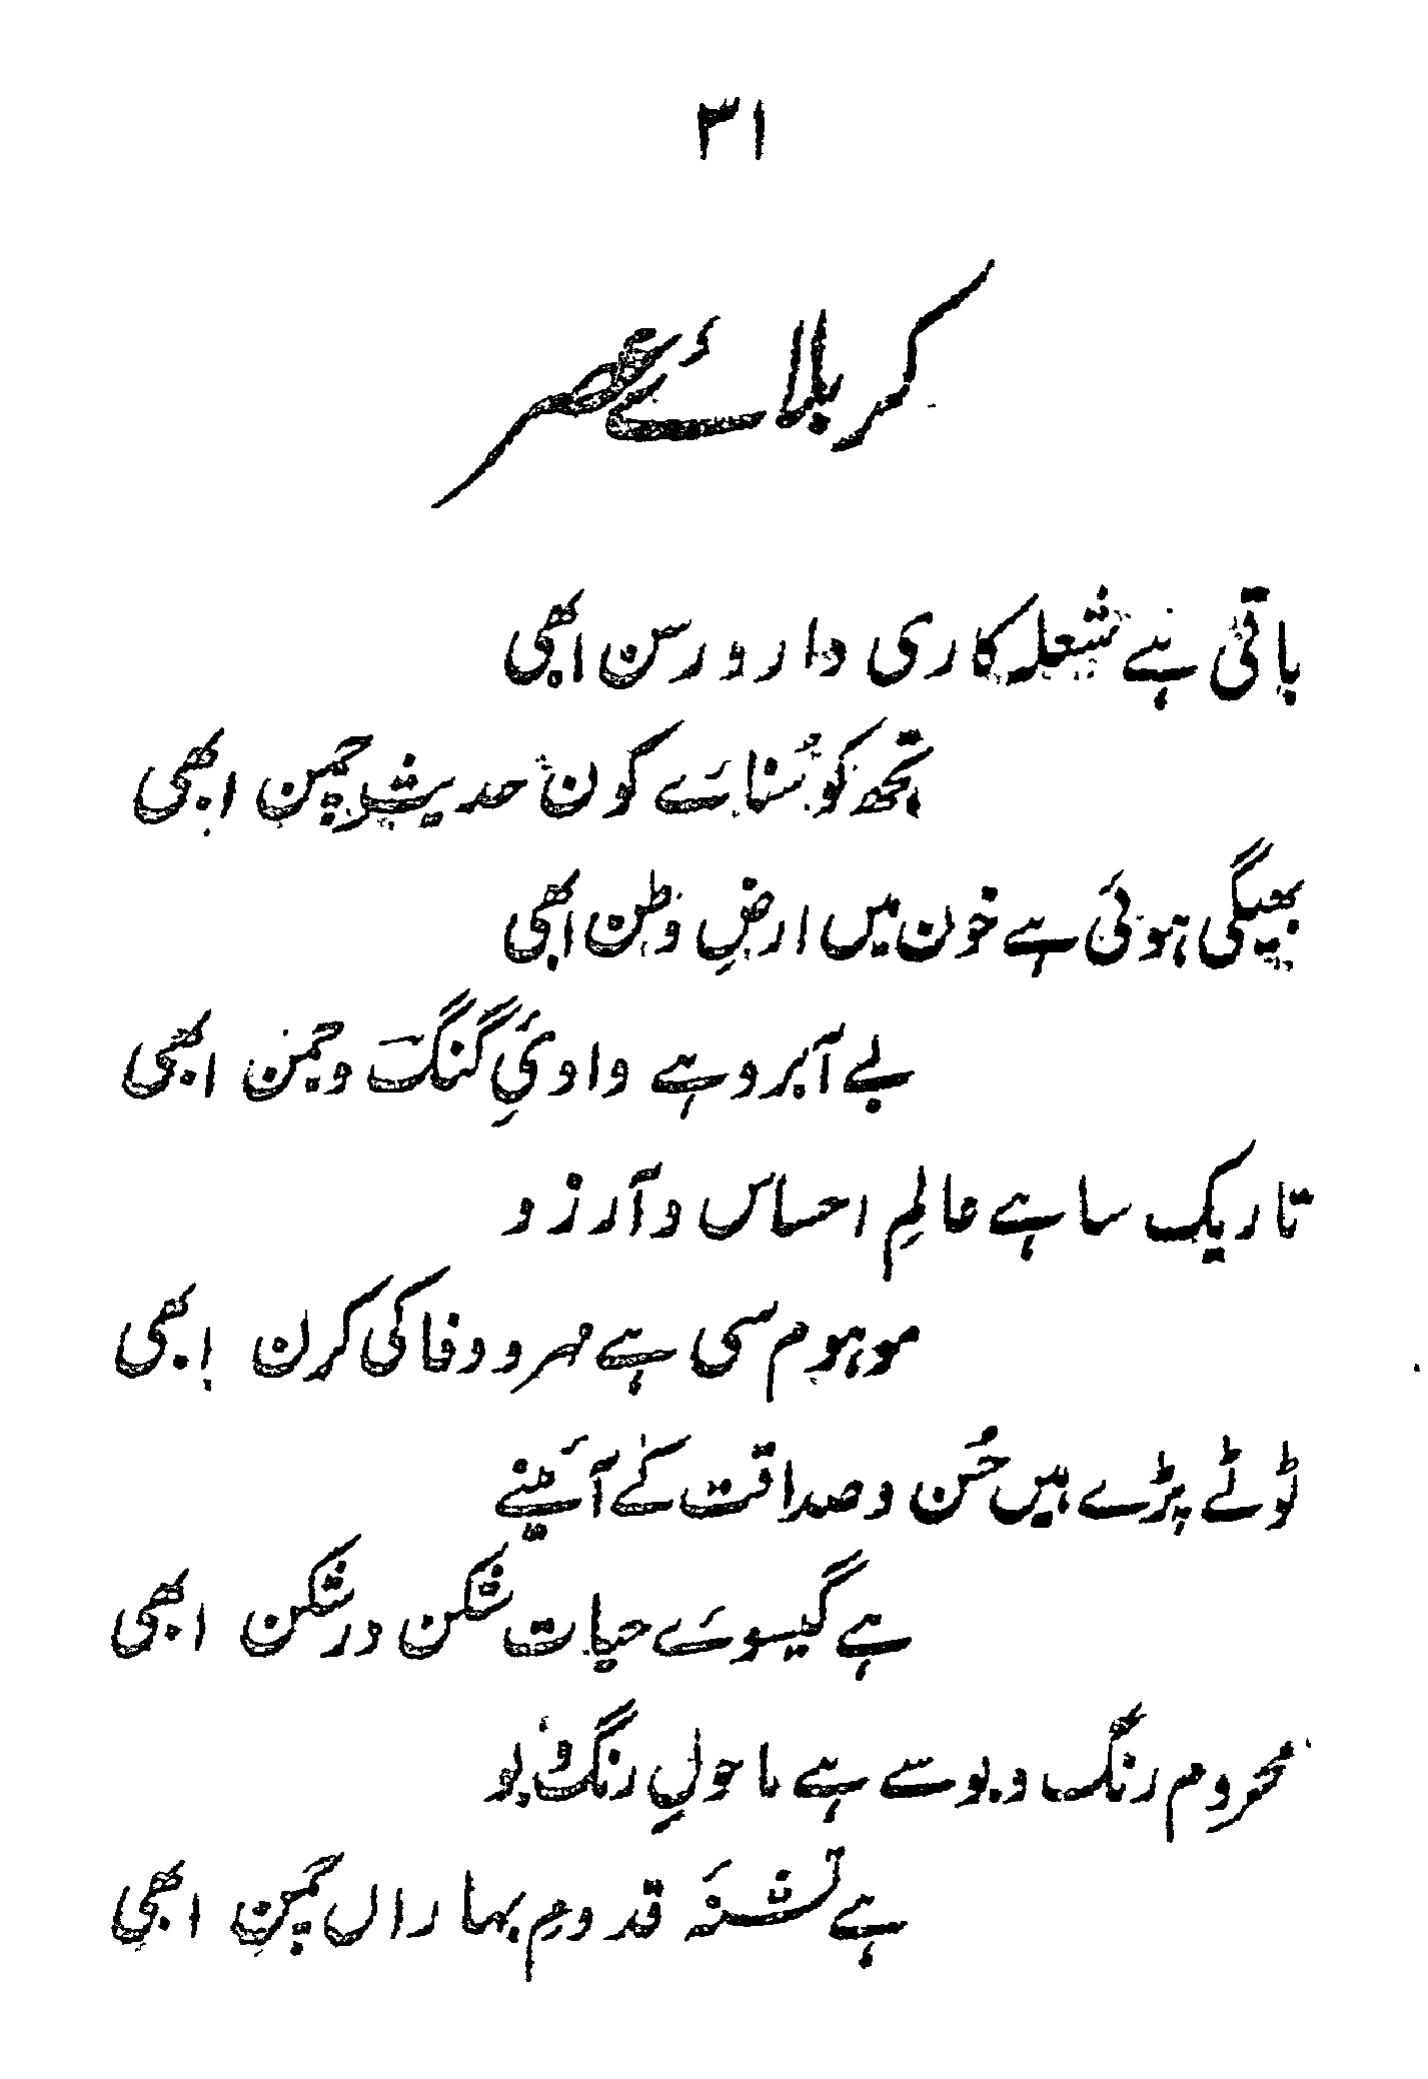 ۳۱
کربلائے عصر
باقی ہے شعلہ کاری دار و رسن ابھی
تجھ کو سُنائے کون حدیثِ چمن ابھی
بھیگی ہوئی ہے خون میں ارضِ وطن ابھی
بے آبرو ہے وادئِ گنگ و جمن ابھی
تاریک سا ہے عالمِ احساس و آرزو
موہوم سی ہے مہر و وفا کی کرن ابھی
ٹوٹے پڑے ہیں حُسن و صداقت کے آئینے
ہے گیسوئے حیات شکن در شکن ابھی
محروم رنگ و بو سے ہے ماحولِ رنگ و بو
ہے تشنۂ قدومِ بہاراں چمن ابھی